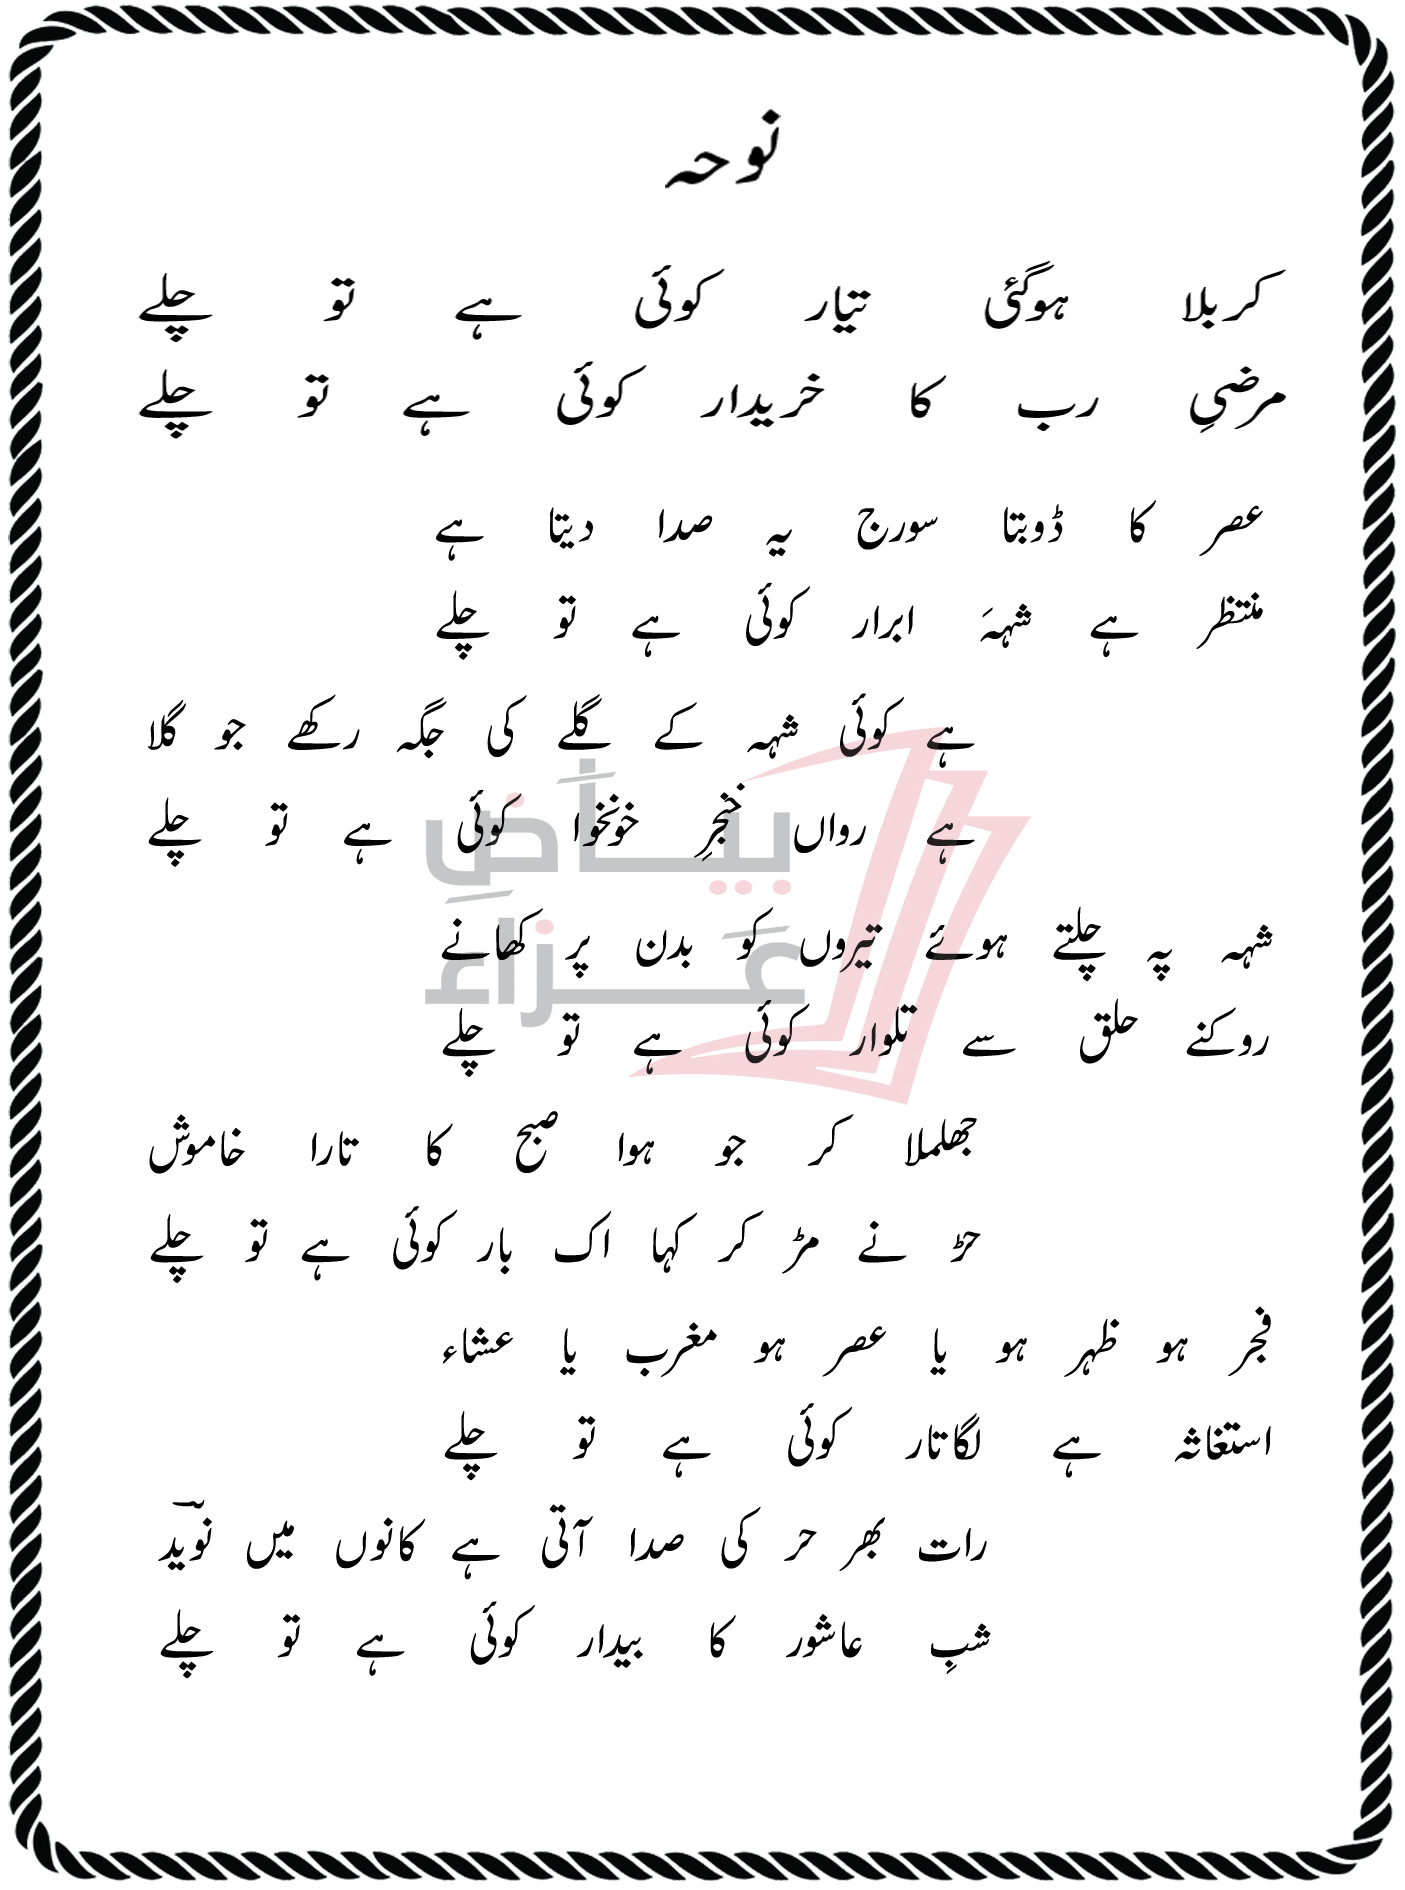 نوحہ
کربلا ہوگئی تیار کوئی ہے تو چلے
مرضیِ رب کا خریدار کوئی ہے تو چلے
عصر کا ڈوبتا سورج یہ صدا دیتا ہے
منتظر ہے شہہَ ابرار کوئی ہے تو چلے
ہے کوئی شہہ کے گلے کی جگہ رکھے جو گلا
ہے رواں خنجرِ خونخوا کوئی ہے تو چلے
بیاضِ
عزاء
شہہ پہ چلتے ہوئے تیروں کو بدن پر کھانے
روکنے حلق سے تلوار کوئی ہے تو چلے
جھلملا کر جو ہوا صبح کا تارا خاموش
حڑ نے مڑ کر کہا اک بار کوئی ہے تو چلے
فجر ہو ظہر ہو یا عصر ہو مغرب یا عشاء
استغاثہ ہے لگاتار کوئی ہے تو چلے
رات بھر حر کی صدا آتی ہے کانوں میں نویدؔ
شبِ عاشور کا بیدار کوئی ہے تو چلے